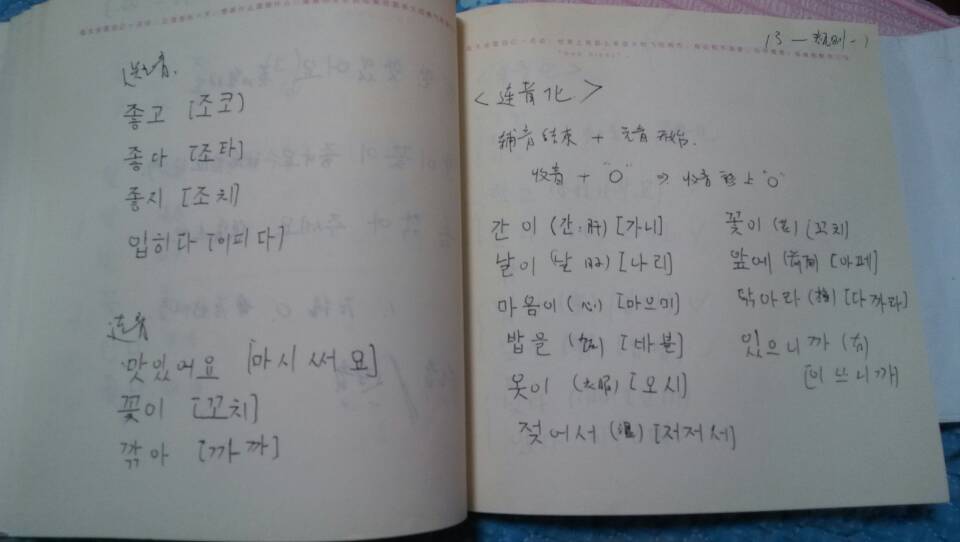 送气音.
좋고 [조코)
좋아 [조타]
좋지 [조치]
입히다 [이피다]
连音
맛있어요 [마시써요]
꽃이 [꼬치]
깎아 [까까]
13-规则-1
<连音化>
辅音结束 + 元音开始.
收音 + "O" => 收音 移上"O"
간이 (간:肝) [가니]
날이 (날 日) [나리]
마음이 (心) [마으미]
밥을 (饭) [바블]
옷이 (衣服) [오시]
젖어서 (湿) [저저서]
꽃이 (花) [꼬치]
앞에 (前面) [아페]
닦아라 (擦) [다까라]
있으니까 (有)
[이쓰니까]